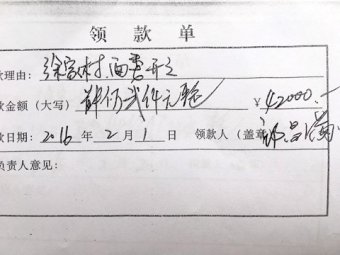 领款单
款理由：徐家村
款金额（大写） 肆仟贰仟元整 ￥42000.—
款日期：2016年2月1日 领款人（盖章
负责人意见：